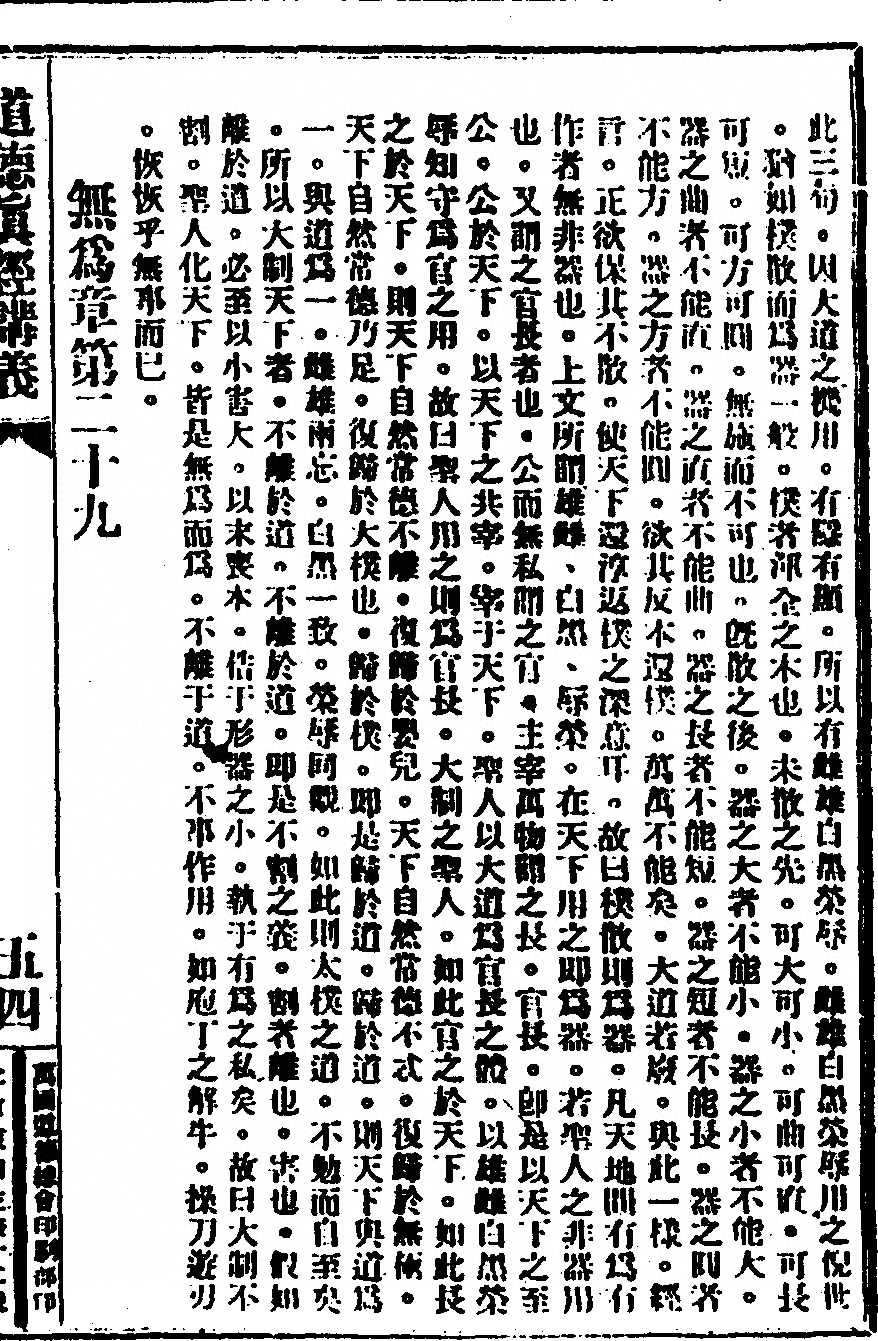 此三句。因大道之機用。有隱有顯。所以有雌雄白黑榮辱。雌雄白黑榮辱用之倪世
。猶如樸散而為器一般。樸者渾全之木也。未散之先。可大可小。可曲可直。可長
可短。可方可圓。無施而不可也。既散之後。器之大者不能小。器之小者不能大。
器之曲者不能直。器之直者不能曲。器之長者不能短。器之短者不能長。器之圓者
不能方。器之方者不能圓。欲其反本還樸。萬萬不能矣。大道若廢。與此一樣。經
言。正欲保其不散。使天下還淳返樸之深意耳。故曰樸散則為器。凡天地間有為有
作者無非器也。上文所謂雄雌、白黑、辱榮。在天下用之即為器。若聖人之非器用
也。又謂之官長者也。公而無私謂之官。主宰萬物謂之長。官長。即是以天下之至
公。公於天下。以天下之共宰。宰于天下。聖人以大道為官長之體。以雄雌白黑榮
辱知守為官之用。故曰聖人用之則為官長。大制之聖人。如此官之於天下。如此長
之於天下。則天下自然常德不離。復歸於嬰兒。天下自然常德不忒。復歸於無極。
天下自然常德乃足。復歸於大樸也。歸於樸。即是歸於道。歸於道。則天下與道為
一。與道為一。雌雄兩忘。白黑一致。榮辱同觀。如此則太樸之道。不勉而自至矣
。所以大制天下者。不離於道。不離於道。即是不割之義。割者離也。害也。假如
離於道。必至以小害大。以末喪本。恃于形器之小。執于有為之私矣。故曰大制不
割。聖人化天下。皆是無為而為。不離于道。不事作用。如庖丁之解牛。操刀遊刃
。恢恢乎無事而已。
無為章第二十九
道德真經講義
五四